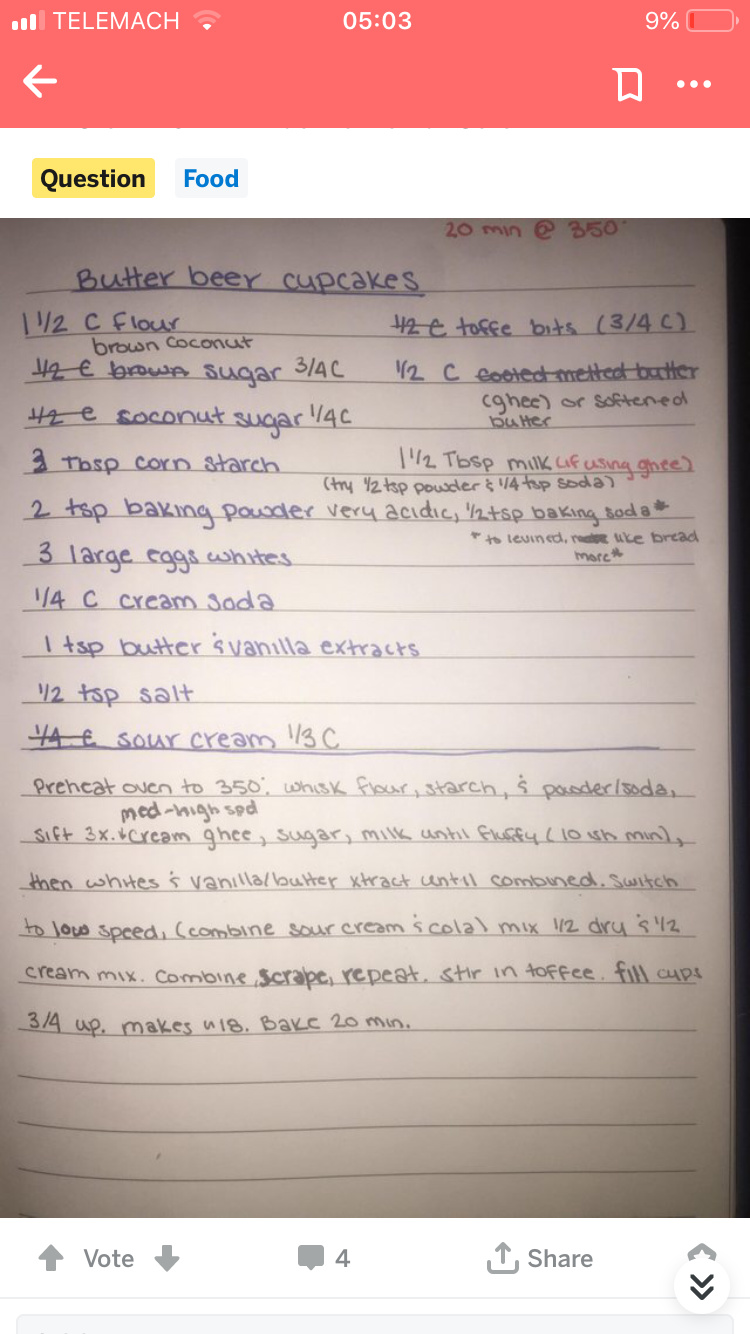 TELEMACH 05:03 9%
Question Food
20 min @ 350°
Butter beer cupcakes
1 1/2 C flour
1/2 C toffe bits (3/4 C)
brown coconut
1/2 C brown sugar 3/4 C
1/2 C cooled melted butter
(ghee) or softened
butter
1/2 C coconut sugar 1/4 C
3 Tbsp corn starch
1 1/2 Tbsp milk (if using ghee)
(try 1/2 tsp powder & 1/4 tsp soda)
2 tsp baking powder very acidic, 1/2 tsp baking soda*
* to levined, like bread
more*
3 large eggs whites
1/4 C cream soda
1 tsp butter & vanilla extracts
1/2 tsp salt
1/4 C sour cream 1/3 C
Preheat oven to 350°. whisk flour, starch, & powder/soda,
med-high spd
sift 3x. cream ghee, sugar, milk until fluffy (10 ish min),
then whites & vanilla/butter xtract until combined. Switch
to low speed, (combine sour cream & cola) mix 1/2 dry & 1/2
cream mix. combine, scrape, repeat. stir in toffee. fill cups
3/4 up. makes 18. Bake 20 min.
Vote 4 Share